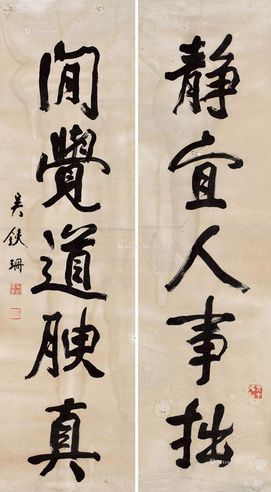 静宜人事拙
閒覺道腴真
吴鐵珊